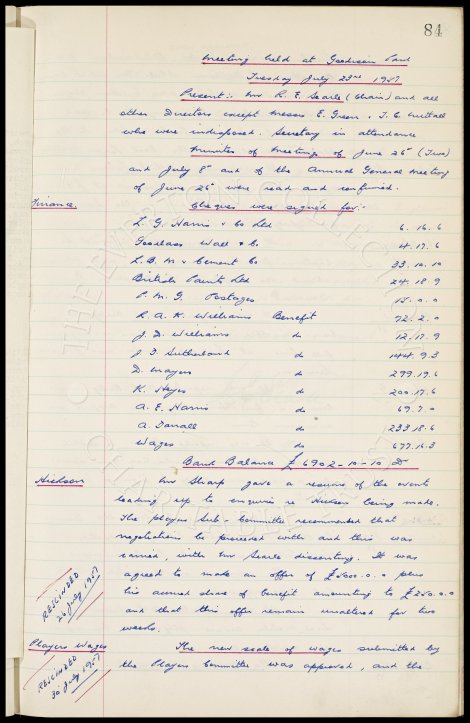 84
Meeting held at Goodison Park
Tuesday July 23rd 1957
Present:- Mr R. E. Searle (Chair) and all
other Directors except Messrs E. Green & T. C. Nuttall
who were indisposed. Secretary in attendance
Minutes of Meetings of June 26th (Two)
and July 8th and of the Annual General Meeting
of June 26th were read and confirmed.
Finance. Cheques were signed for:-
L. G. Harris & Co Ltd 6. 16. 6
Goodlass Wall & Co. 4. 17. 6
L. B. M. & Cement Co 33. 10. 10
British Paints Ltd 24. 18. 9
P. M. G. Postages 15. 0. 0
R. A. K. Williams Benefit 72. 2. 0
J. D. Williams do 12. 17. 9
J. F. Sutherland do 144. 9. 3
D. Mayers do 299. 19. 6
K. Heyes do 200. 17. 6
A. E. Harris do 69. 7. 0
A. Farrall do 233 18. 6
Wages do 677. 16. 3
Bank Balance £ 6902-10-10 Dr
Hickson Mr Sharp gave a resume of the events
leading up to enquiries re Hickson being made.
The players Sub-Committee recommended that
negotiations be proceeded with and this was
carried, with Mr Searle dissenting. It was
agreed to make an offer of 0. 0 plus
his accrued share of benefit amounting to £250. 0. 0
and that this offer remain unaltered for two
weeks.
RESCINDED
26 July 1957
Players Wages The new scale of wages submitted by
the Players Committee was approved, and the
RESCINDED
30 July 1957
THE EVERTON COLLECTION
CHARITABLE TRUST